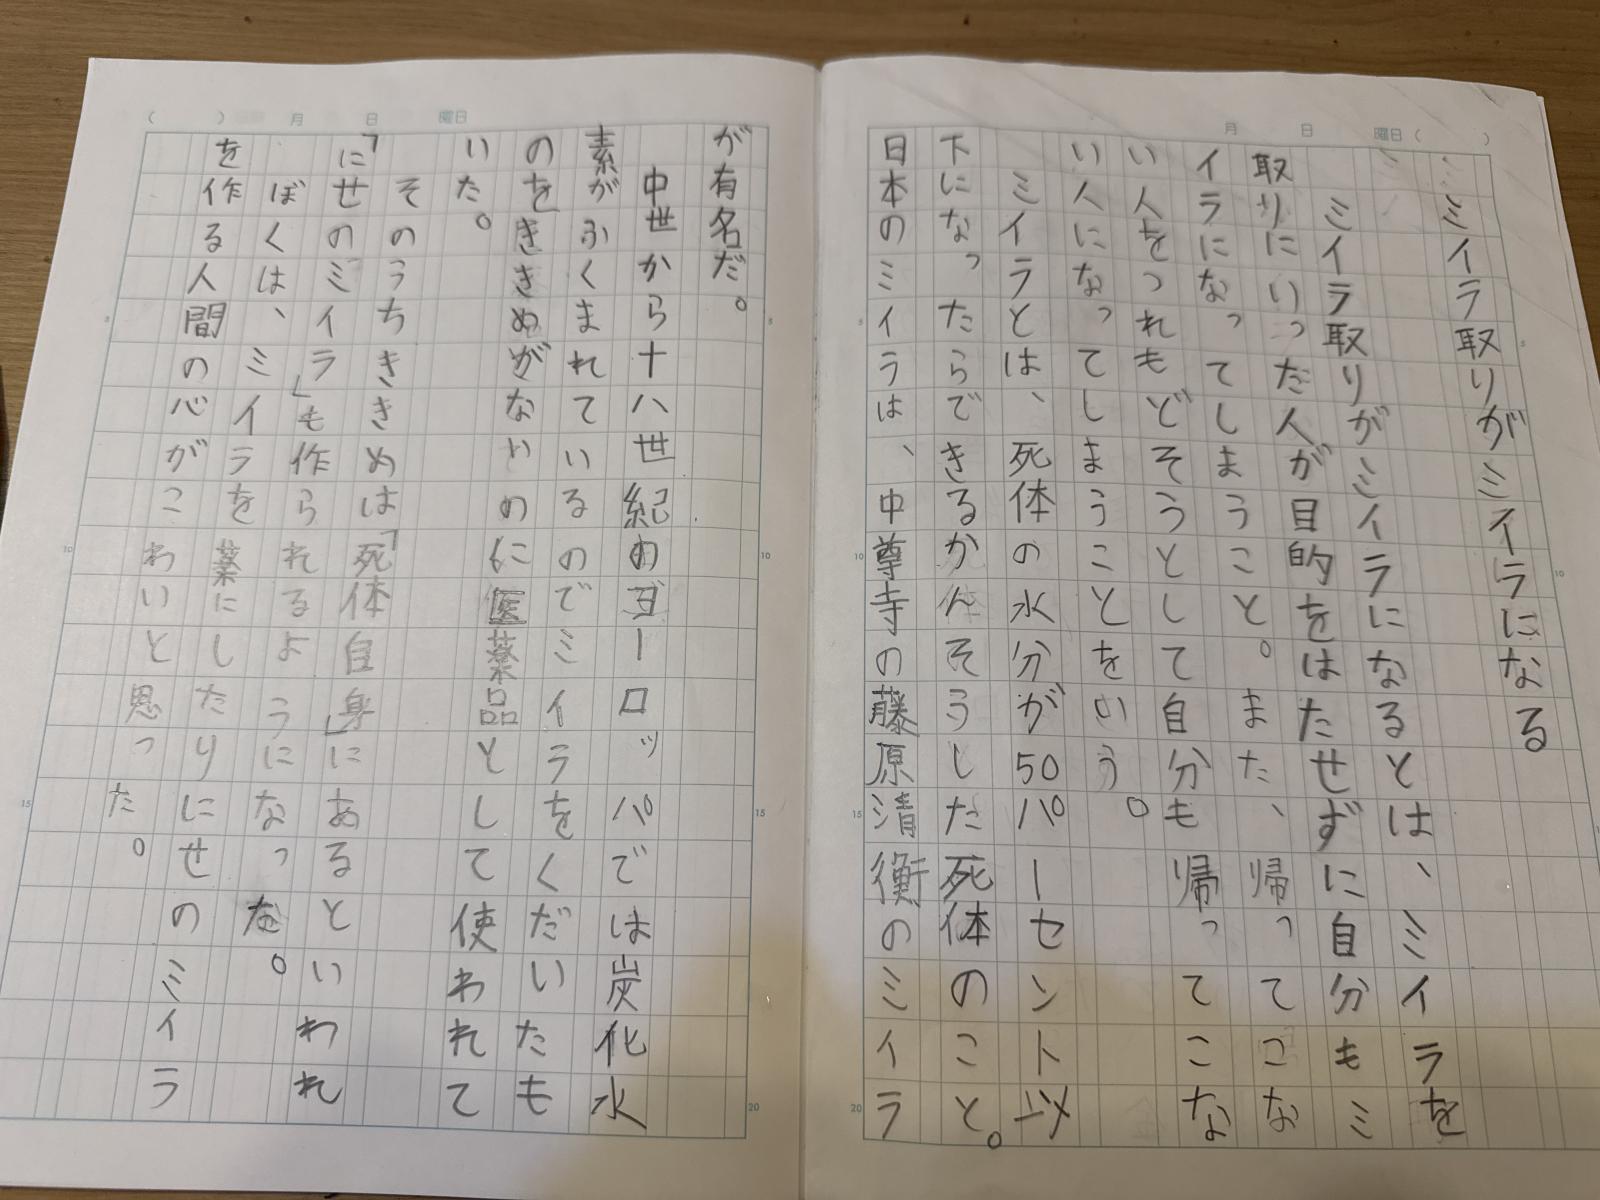 月 日 曜日 ( )
ミイラ取りがミイラになる
ミイラ取りがミイラになるとは、ミイラを
取りにいった人が目的をはたせずに自分もミ
イラになってしまうこと。また、帰ってこな
い人をつれもどそうとして自分も帰ってこな
い人になってしまうことをいう。
ミイラとは、死体の水分が50パーセント以
下になったらできるかんそうした死体のこと。
日本のミイラは、中尊寺の藤原清衡のミイラ
5
10
15
20
( ) 月 日 曜日
が有名だ。
中世から十八世紀のヨーロッパでは炭化水
素がふくまれているのでミイラをくだいたも
のをききめがないのに医薬品として使われて
いた。
そのうちききめは「死体自身」にあるといわれ
「にせのミイラ」も作られるようになった。
ぼくは、ミイラを薬にしたりにせのミイラ
を作る人間の心がこわいと思った。
5
10
15
20